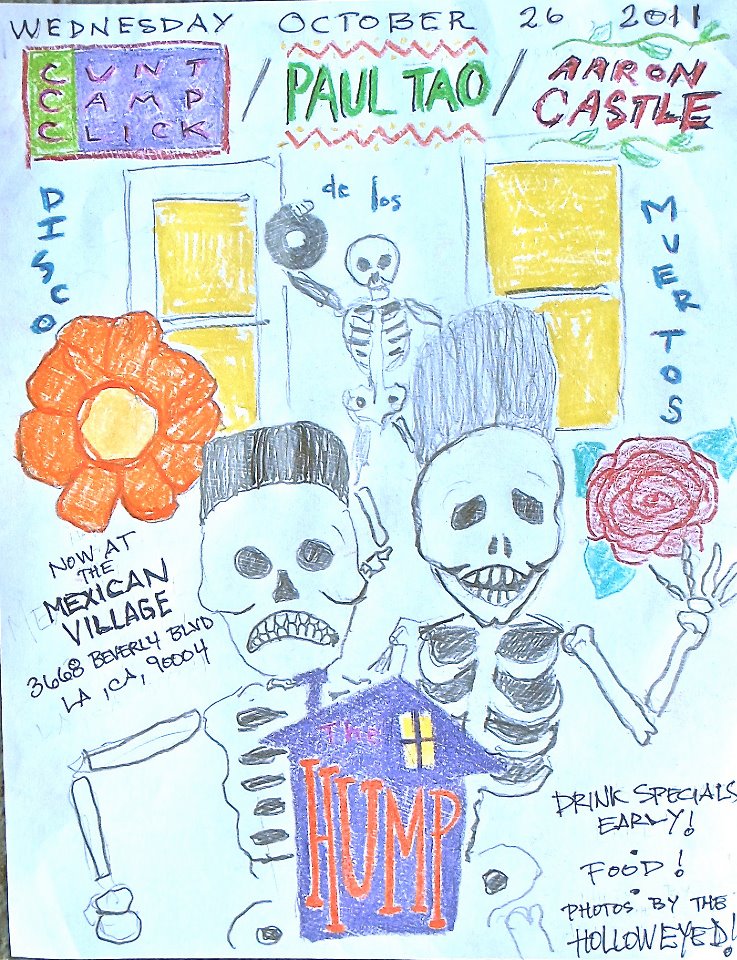 WEDNESDAY OCTOBER 26 2011
CUNT
CAMP
CLICK
/
PAUL TAO
/
AARON
CASTLE
DISCO
de los
MUERTOS
NOW AT
THE
MEXICAN
VILLAGE
3668 BEVERLY BLVD
LA, CA, 90004
The
HUMP
DRINK SPECIALS
EARLY!
FOOD!
PHOTOS BY THE
HOLLOWEYED!